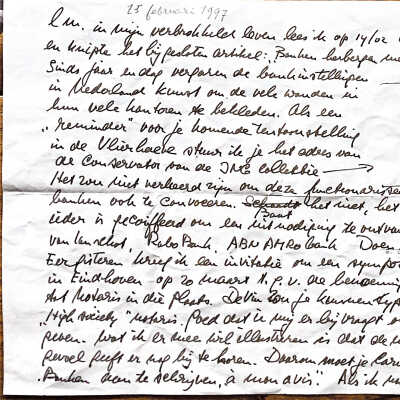 25 februari 1997
L.M. in mijn verbrokkeld leven lees ik op 14/02
en knipte het bijgesloten artikel: "Banken herbergen
Sinds jaar en dag vergaren de bankinstellingen
in Nederland kunst om de vele wanden in
hun vele kantoren te bekleden. Als een
"reminder" voor je komende tentoonstelling
in de Vlierhaeve stuur ik je het adres van
de Conservator van de ING collectie
Het zou niet verkeerd zijn om deze functionarissen
banken ook te convoceren. Schaadt het niet, het
Baat
ieder is gecoiffeerd om een uitnodiging te ontvangen
van Lanschot, Rabo Bank, ABN AMRO bank Doen
Eergisteren kreeg ik een invitatie om een sympo
in Eindhoven op 20 maart t.g.v. de benoeming
tot Notaris in die plaats. De
"High society" notaris. Goed dat is mij er bij vraagt
geven. Wat ik er mee wil illustreren is dat de
gevoel geeft er nog bij te horen. Daarom moet je
Banken aan te schrijven, à mon avis". Als ik